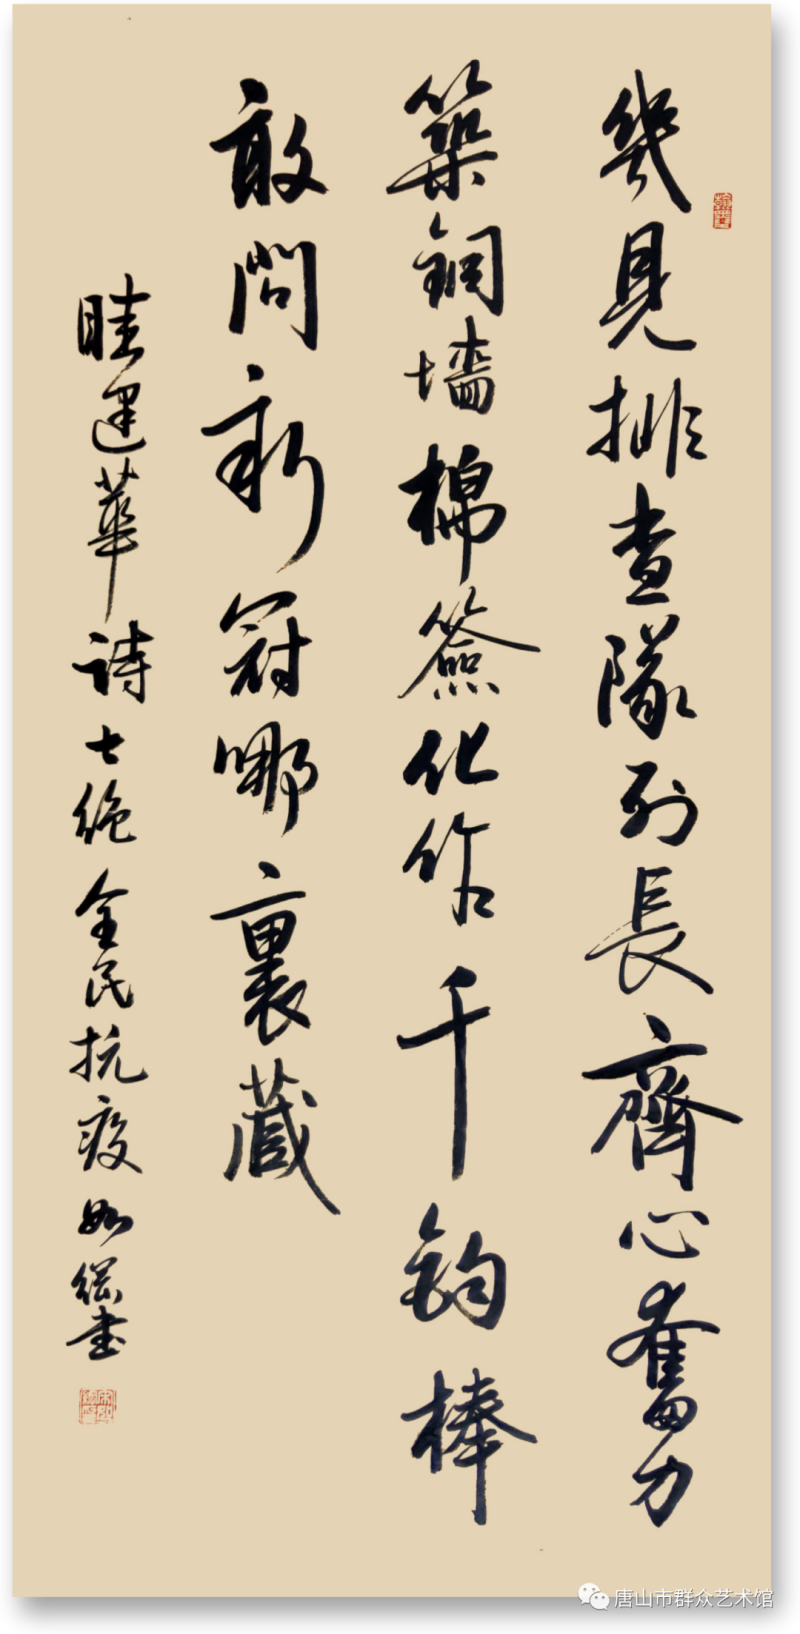 幾見排查隊列長齊心奮力
築銅墻棉簽化作千鈞棒
敢問新冠哪裏藏
眭建華詩七絶全民抗疫如綱書
唐山市群众艺术馆